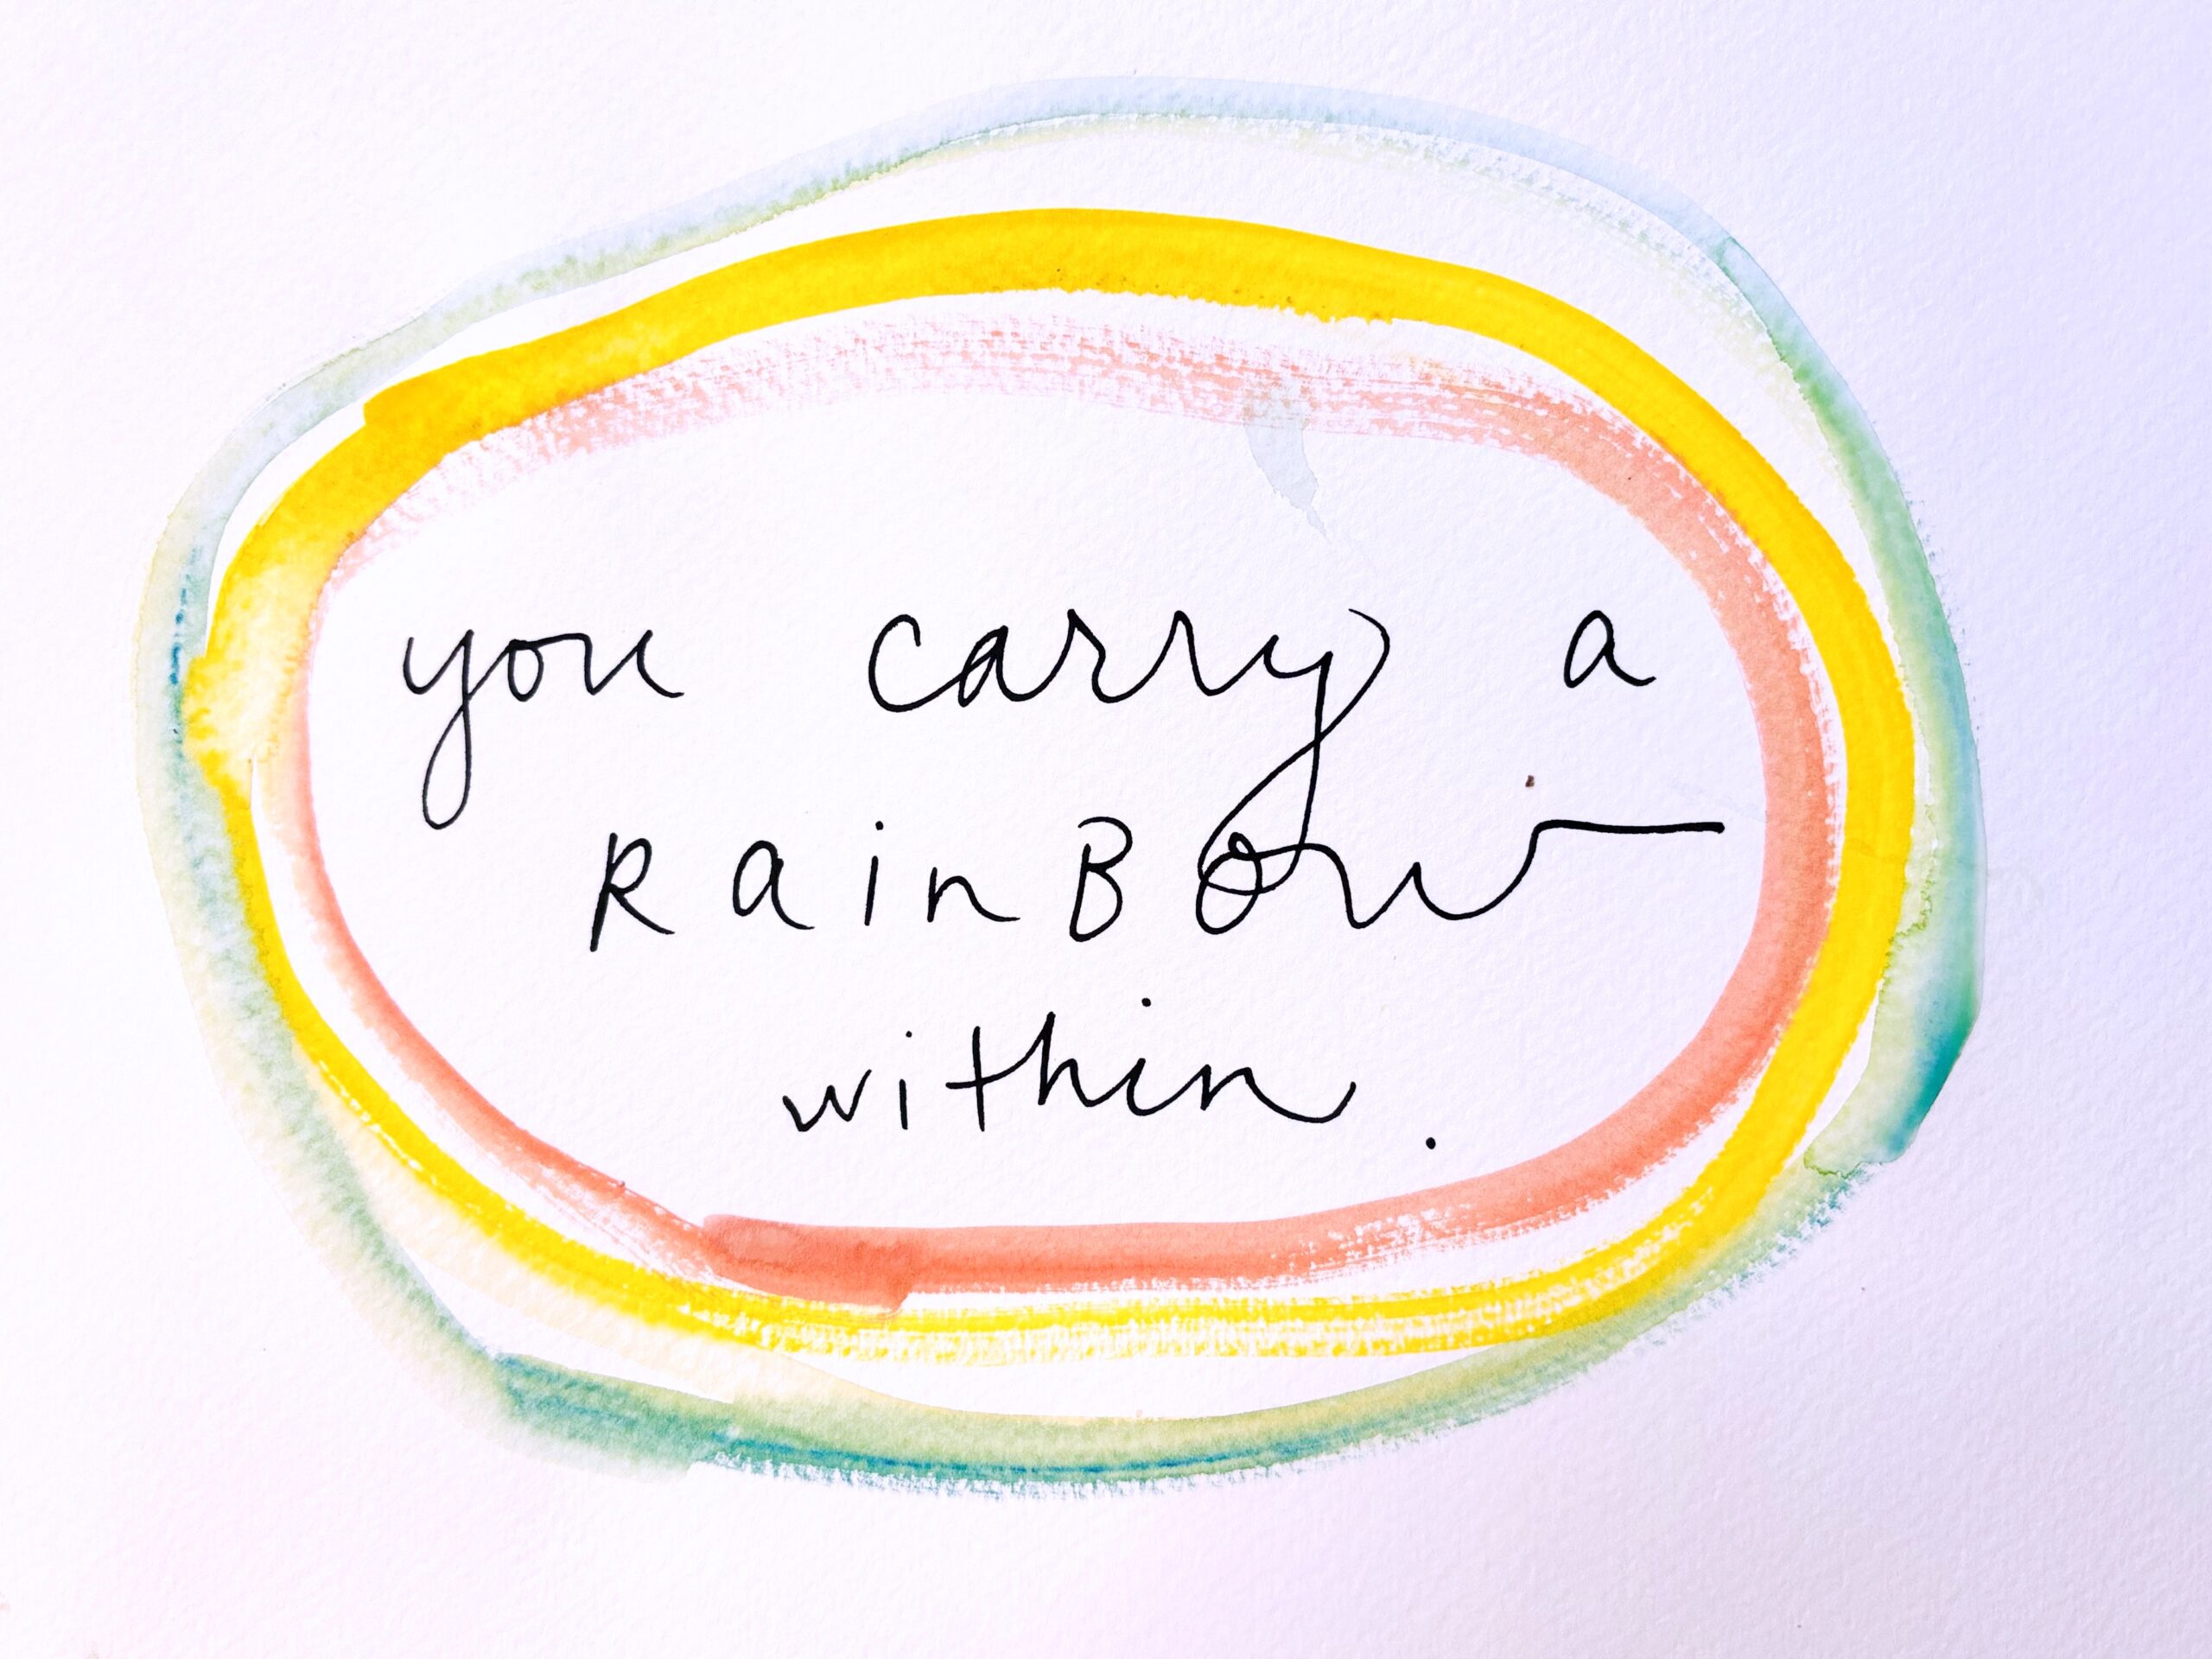 you carry a
RainBow
within.